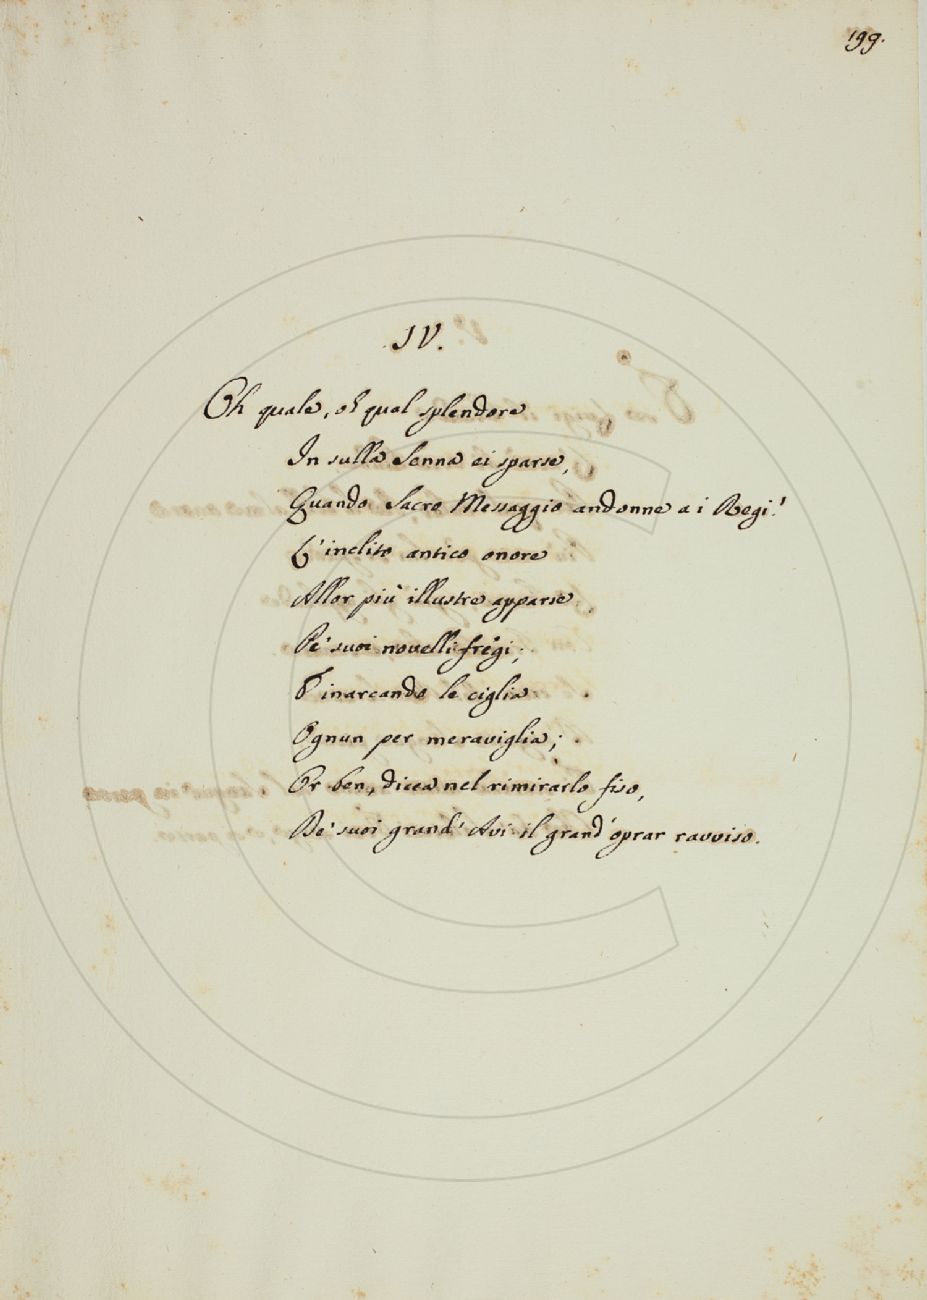 199.
IV.
Oh quale, oh qual splendore
In sulla Senna ei sparse,
Quando Sacro Messaggio andonne a i Regi!
L'inclito antico onore
Allor più illustre apparse
Pe' suoi novelli fregi;
E inarcando le ciglia
Ognun per meraviglia;
Or ben, dicea nel rimirarlo fiso,
De' suoi grand' Avi il grand' oprar ravviso.